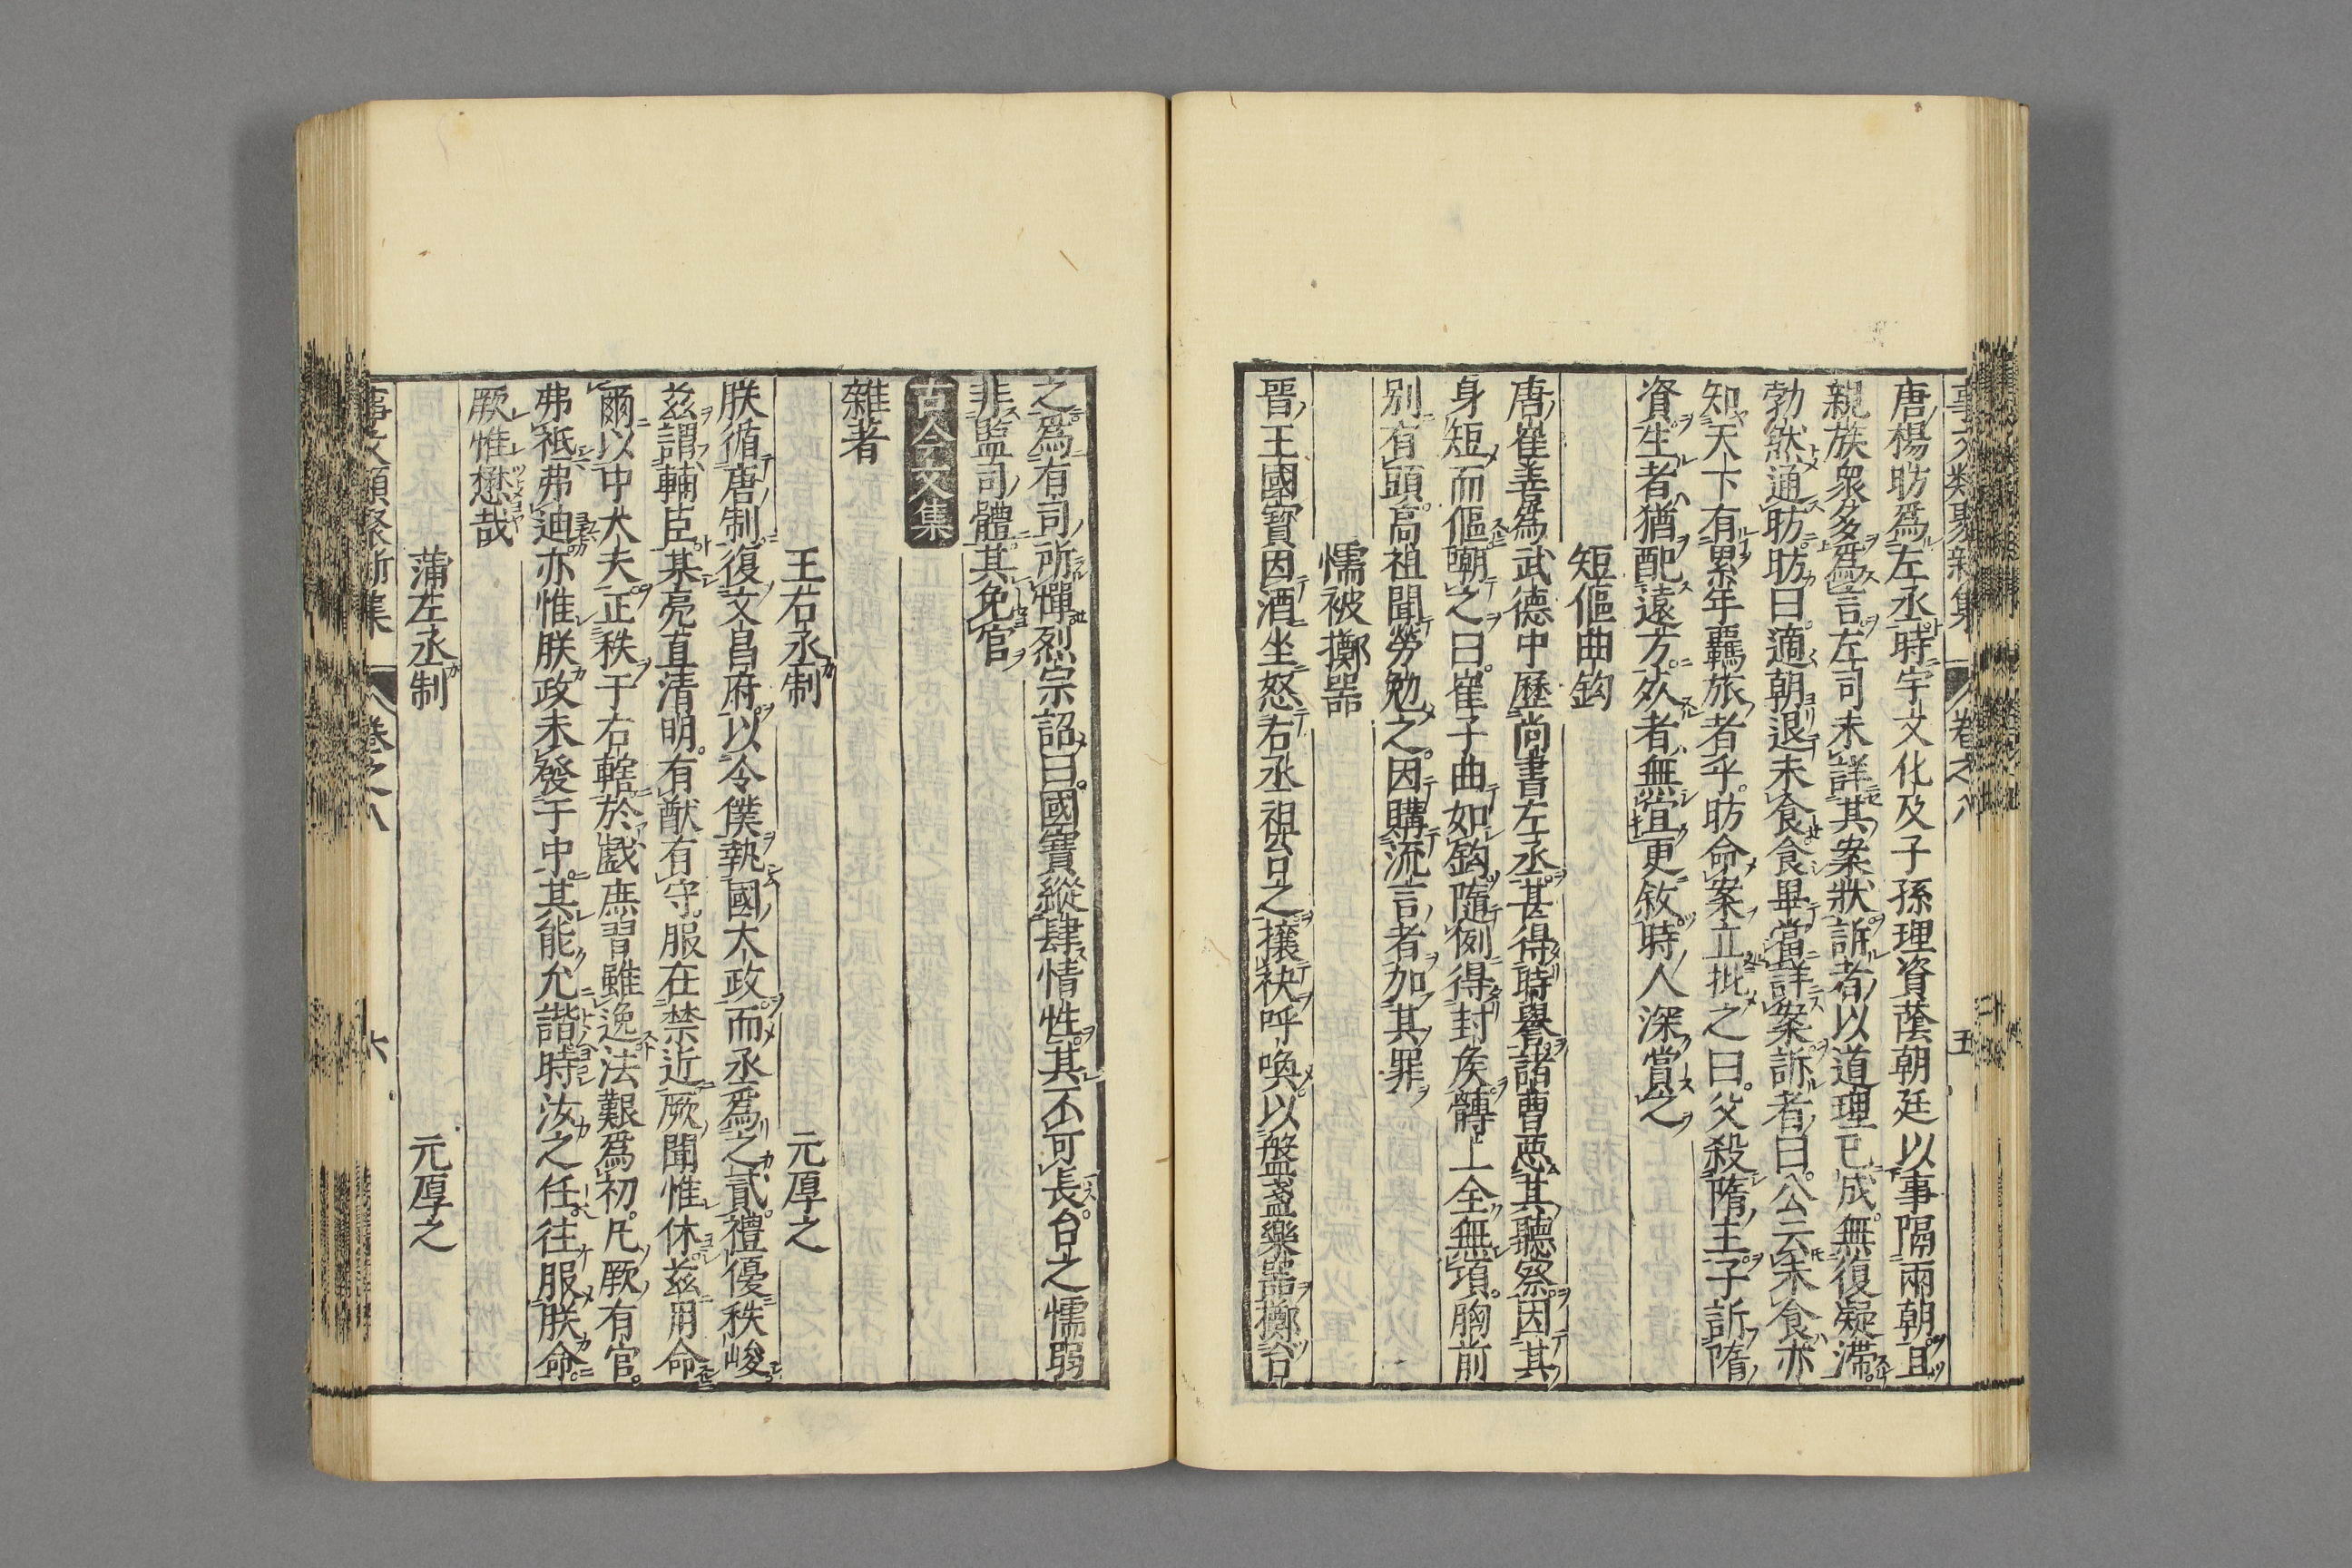 事文類聚新集 卷之八 五
唐楊昉爲左丞時宇文化及子孫理資蔭朝廷以事隔兩朝且
親族衆多爲言左司未詳其案狀訴者以道理已成無復凝滯
勃然通昉昉曰適朝退未食食畢當詳案訴者曰公云未食亦
知天下有累年羈旅者乎昉命案立批之曰父殺隋主子訴隋
資生者猶配遠方死者無宜更敘時人深賞之
短傴曲鈎
唐崔善爲武德中歷尚書左丞甚得時譽諸曹惡其聽察因其
身短而傴嘲之曰崔子曲如鈎隨例得封侯髆上全無項胸前
別有頭高祖聞勞勉之因購流言者加其罪
懦被擲噐
晉王國寳因酒坐怒右丞祖台之攘袂呼喚以盤盞樂噐擲台
之爲有司所憚烈宗詔曰國寳縱肆情性其不可長台之懦弱
非監司體其免官
古今文集
雜著
王右丞制 元厚之
朕循唐制復文昌府以令僕執國大政而丞爲之貳禮優秩峻
玆謂輔臣某亮直清明有猷有守服在禁近厥聞惟休玆用命
爾以中大夫正秩于右轄於戲庶習雖逸法艱爲初凡厥有官
弗祗弗迪亦惟朕政未發于中其能允諧時汝之任往服朕命
厥惟懋哉
蒲左丞制 元厚之
事文類聚新集 卷之八 六